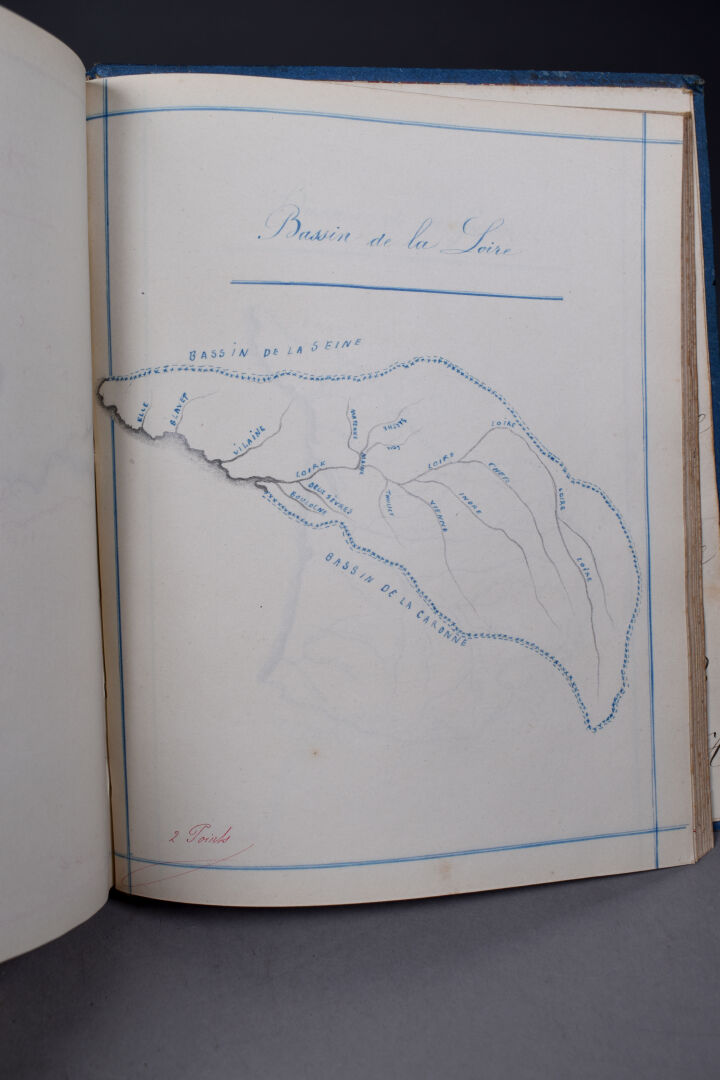 Bassin de la Loire
BASSIN DE LA SEINE
ELLE
BLAVET
VILAINE
MAYENNE
SARTHE
LOIR
MAINE
LOIRE
LOIRE
LOIRE
LOIRE
LOIRE
CHER
INDRE
VIENNE
THOUET
DEUX SÈVRES
BOULOGNE
BASSIN DE LA GARONNE
2 Points